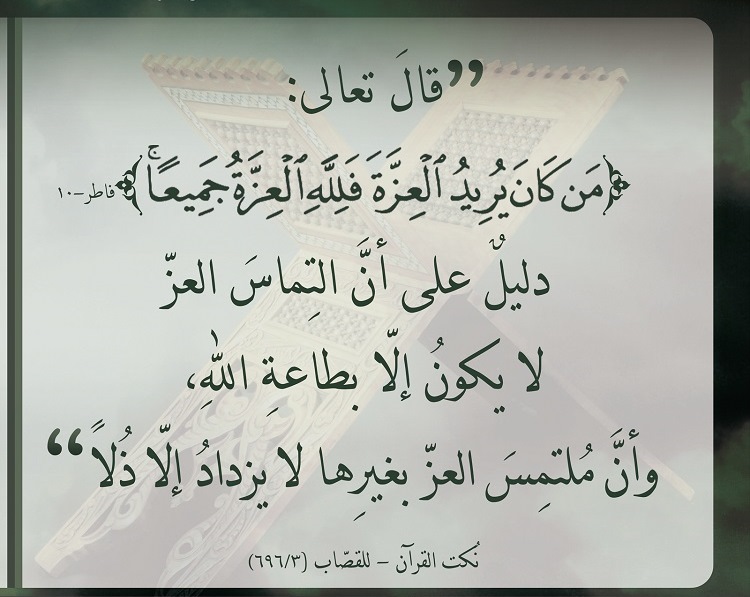 ”قالَ تعالى:
﴿مَن كَانَ يُرِيدُ ٱلْعِزَّةَ فَلِلَّهِ ٱلْعِزَّةُ جَمِيعًاۚ﴾ فاطر-١٠
دليلٌ على أنَّ التِماسَ العزّ
لا يكونُ إلّا بطاعةِ اللهِ،
وأنَّ مُلتمِسَ العزّ بغيرِها لا يزدادُ إلّا ذُلاً“
نُكت القرآن – للقصّاب (٦٩٦/٣)